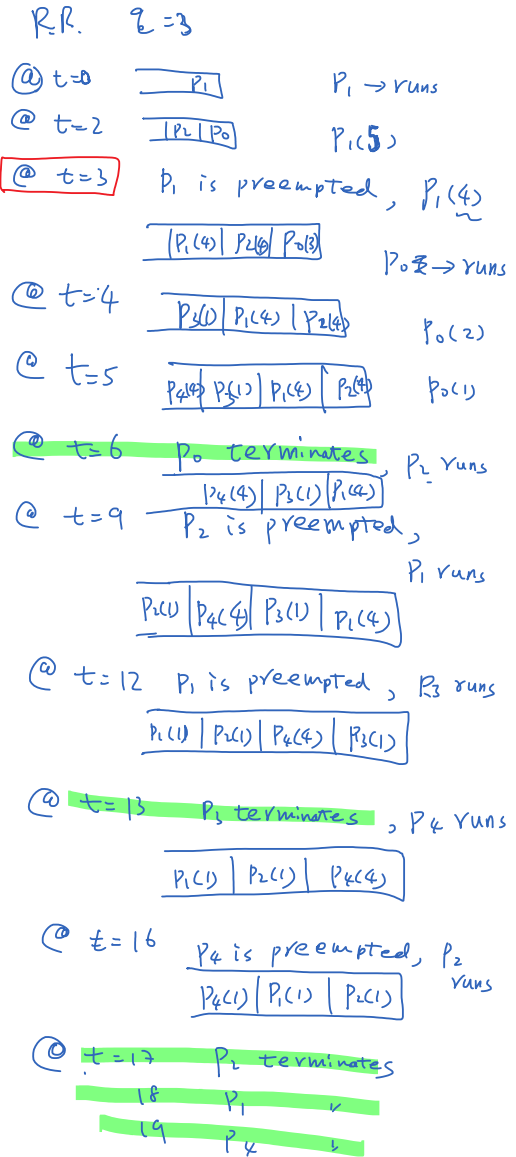 R.R. q=3
@ t=0 P1 P1 → runs
@ t=2 |P2|P0 P1(5)
@ t=3 P1 is preempted, P1(4)
|P1(4)|P2(4)|P0(3) P0 → runs
@ t=4 P3(1)|P1(4)|P2(4) P0(2)
@ t=5 P4(4)|P3(1)|P1(4)|P2(4) P0(1)
@ t=6 P0 terminates, P2 runs
P4(4)|P3(1)|P1(4)
@ t=9 P2 is preempted,
P1 runs
P2(1)|P4(4)|P3(1)|P1(4)
@ t=12 P1 is preempted, P3 runs
P1(1)|P2(1)|P4(4)|P3(1)
@ t=13 P3 terminates, P4 runs
P1(1)|P2(1)|P4(4)
@ t=16 P4 is preempted, P2
runs
P4(1)|P1(1)|P2(1)
@ t=17 P2 terminates
18 P1 〃
19 P4 〃